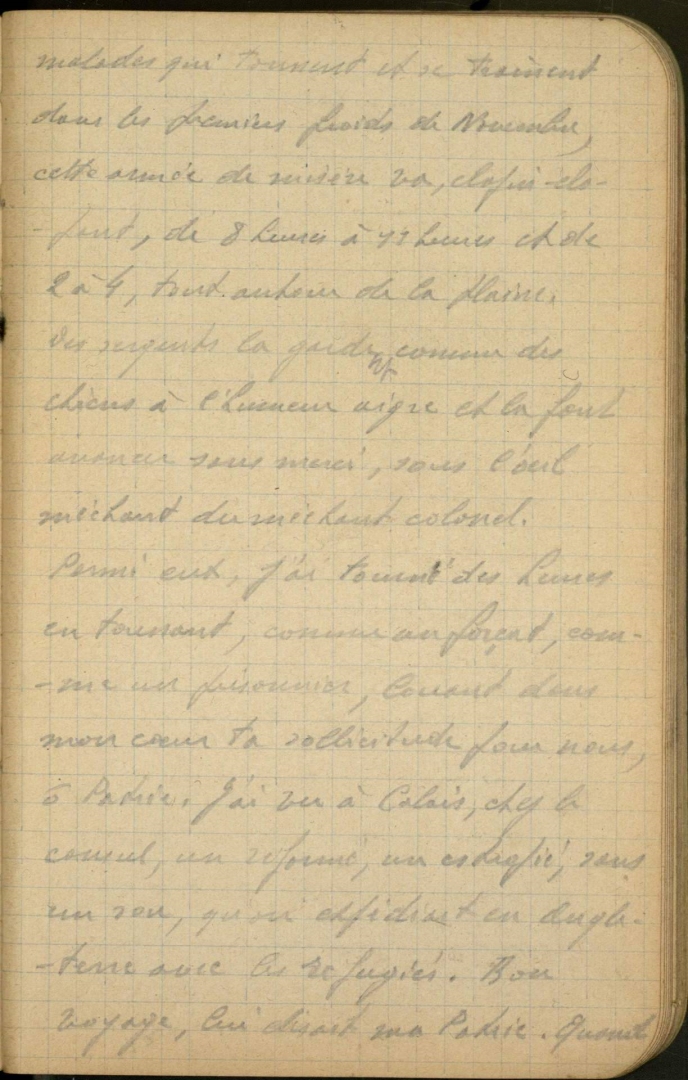 malades qui tournent et se traînent
dans les premiers froids de Novembre,
cette armée de misère va, clopin-clo-
-pant, de 8 heures à 11 heures et de
2 à 4, tout autour de la plaine.
Des sergents la gardent comme des
chiens à l'humeur aigre et la font
avancer sans merci, sous l'œil
méchant du méchant colonel.
Parmi eux, j'ai tourné des heures
en tournant, comme un forçat, com-
-me un prisonnier, louant dans
mon cœur ta sollicitude pour nous,
ô Patrie. J'ai vu à Calais, chez le
consul, un réformé, un estropié, sans
un sou, qu'on expédiait en Angle-
-terre avec les réfugiés. Bon
voyage, lui disait ma Patrie. Quand